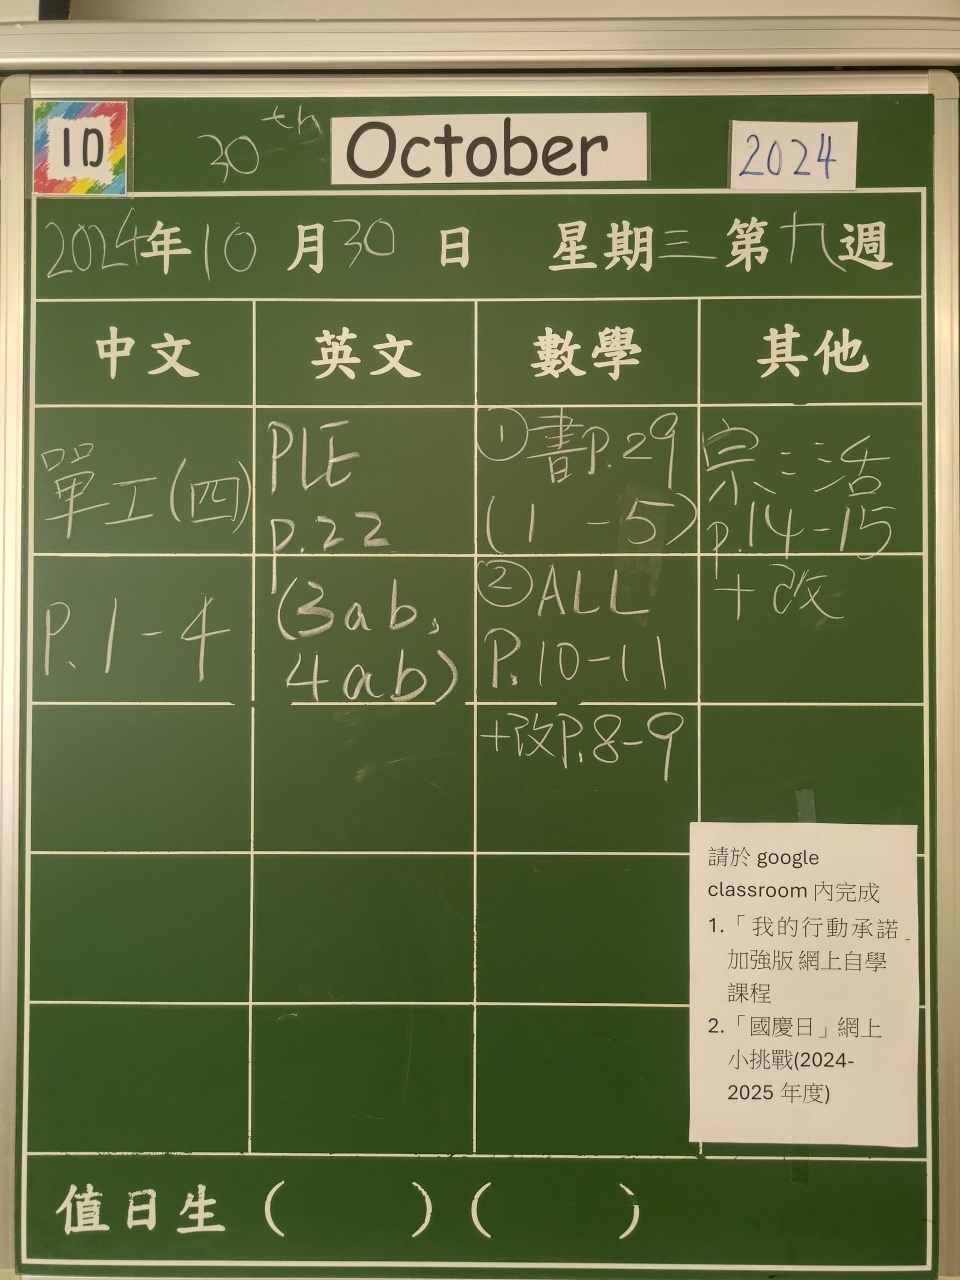 1D
30th October 2024
2024年10月30日 星期三第九週
中文 英文 數學 其他
單工(四)
P.1-4
PLE
p.22
(3ab,
4ab)
①書P.29
(1-5)
②ALL
P.10-11
+改P.8-9
宗:活
p.14-15
+改
請於 google
classroom 內完成
1.「我的行動承諾」
加強版 網上自學
課程
2.「國慶日」網上
小挑戰(2024-
2025 年度)
值日生 ( ) ( )